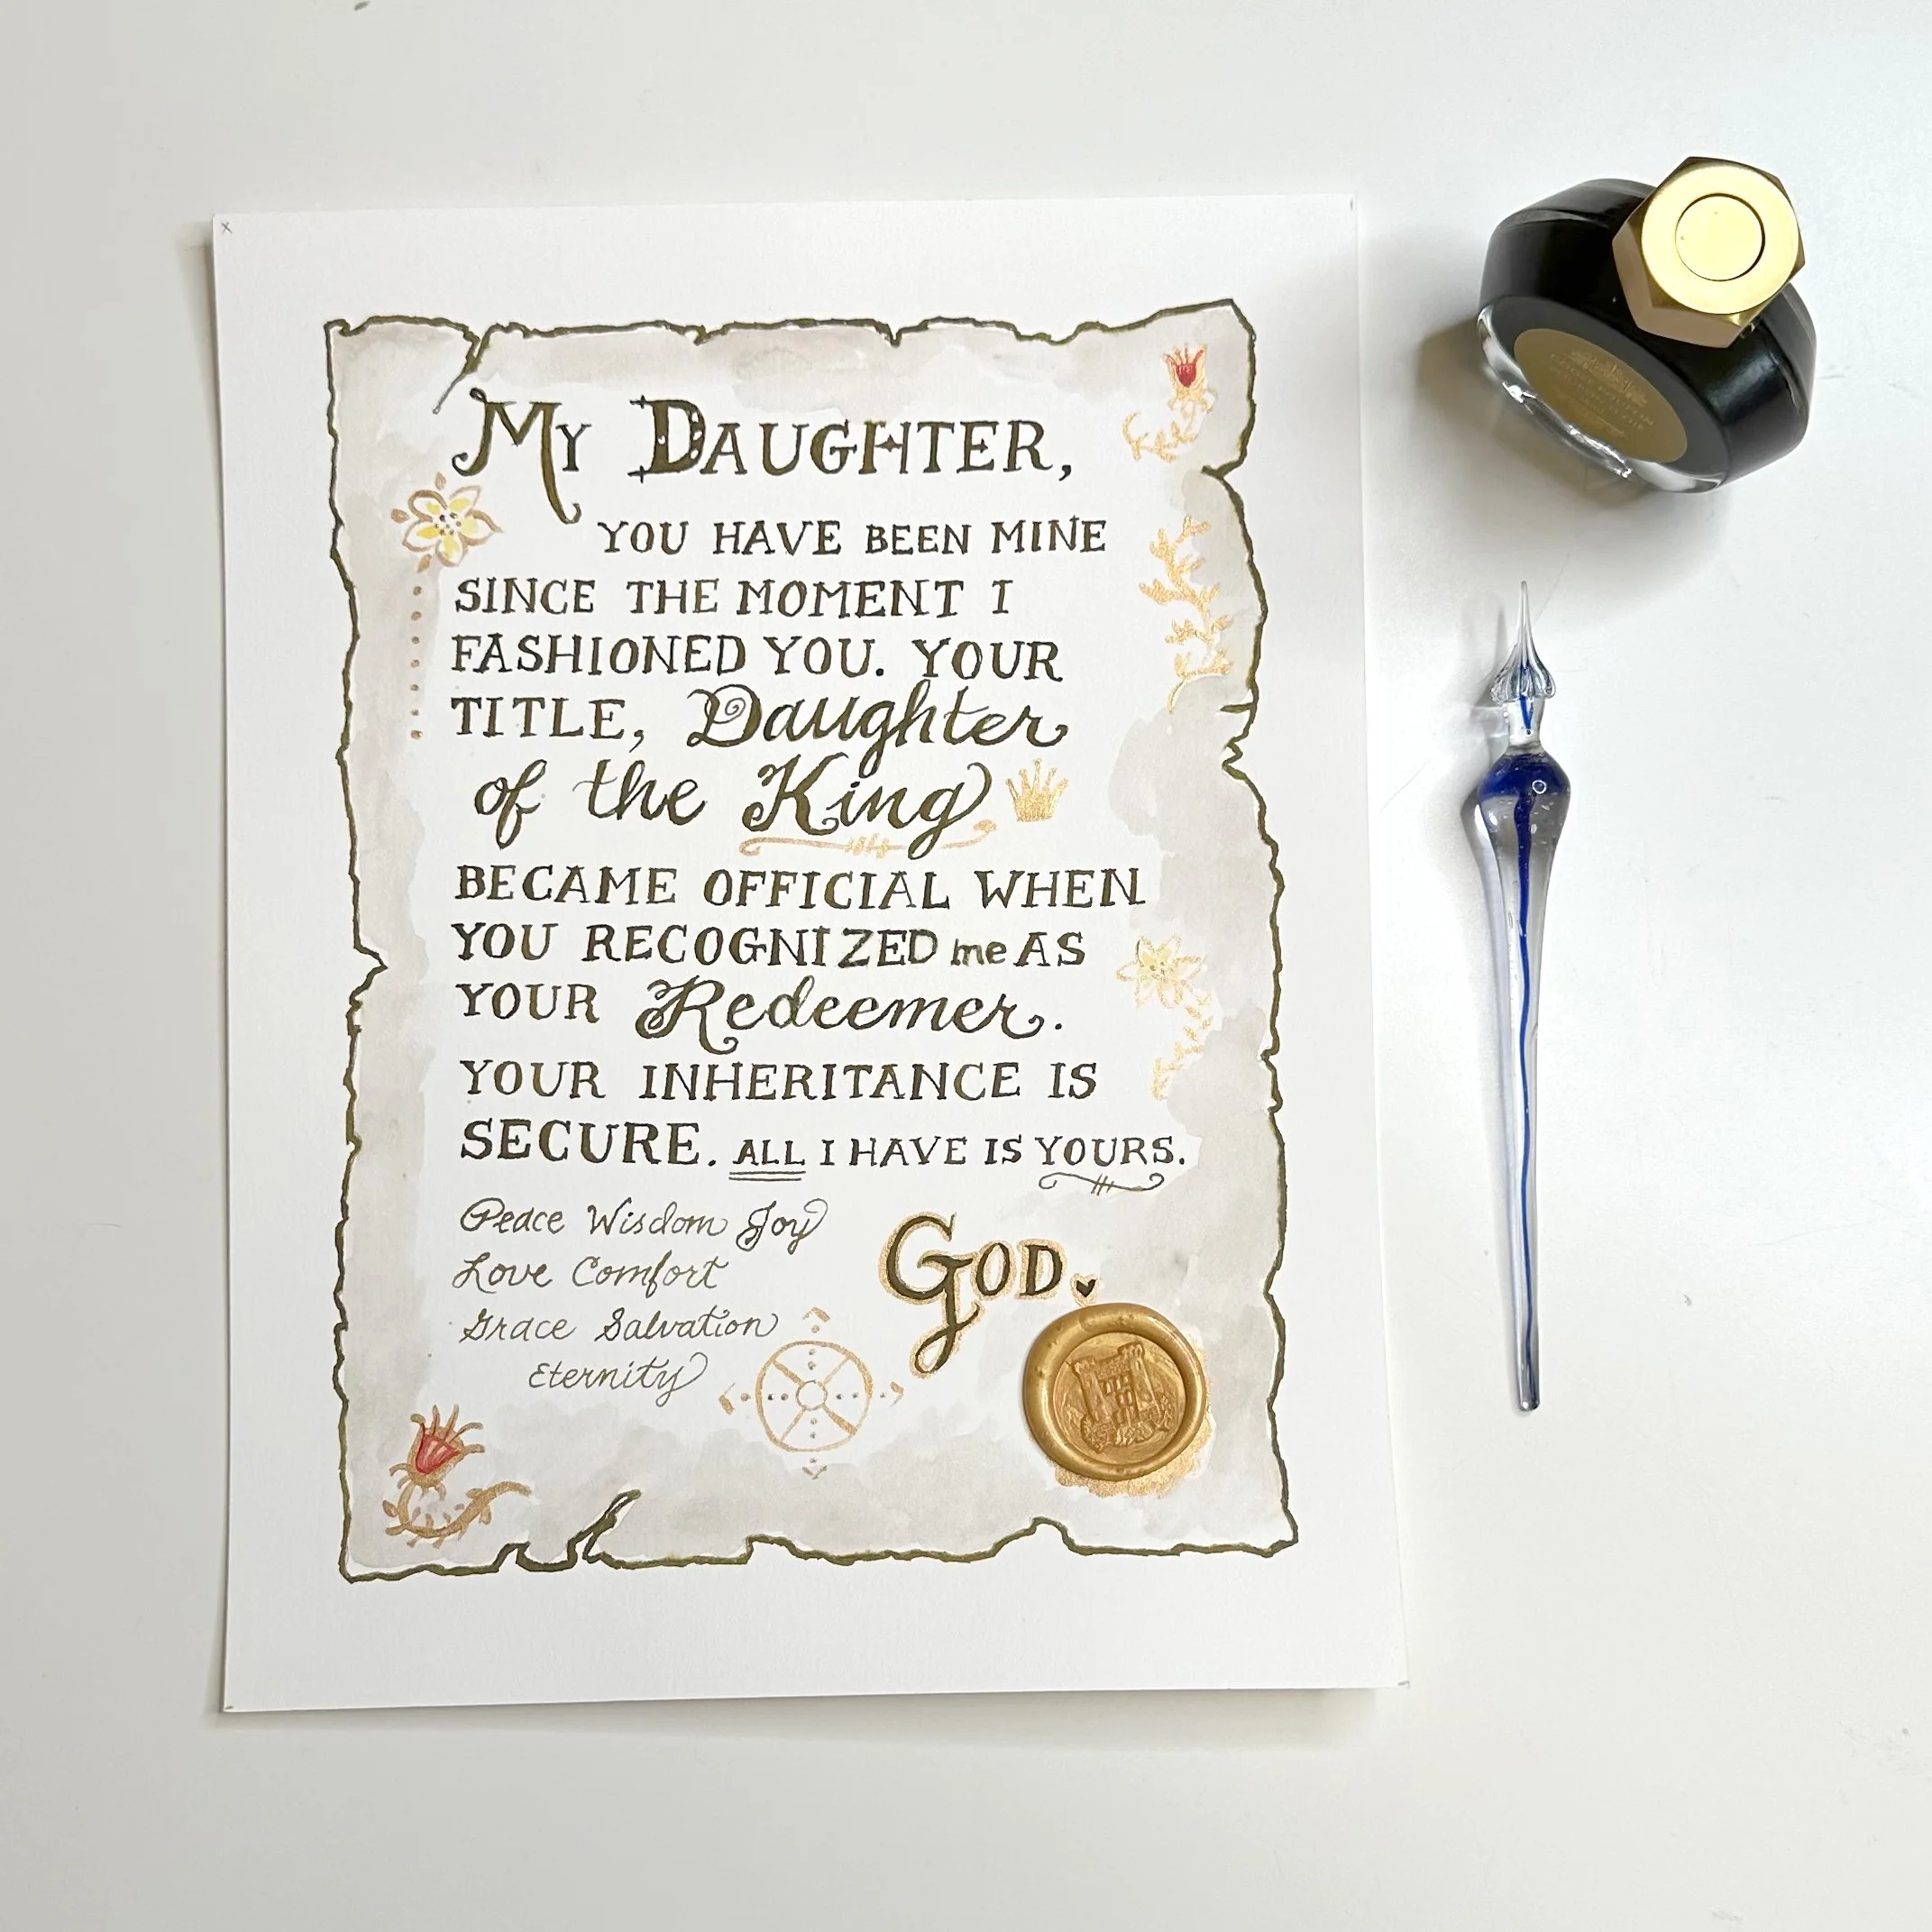 My Daughter,
YOU HAVE BEEN MINE
SINCE THE MOMENT I
FASHIONED YOU. YOUR
TITLE, Daughter
of the King
BECAME OFFICIAL WHEN
YOU RECOGNIZED me AS
YOUR Redeemer.
YOUR INHERITANCE IS
SECURE. ALL I HAVE IS YOURS.
Peace Wisdom Joy
Love Comfort
Grace Salvation
Eternity
GOD